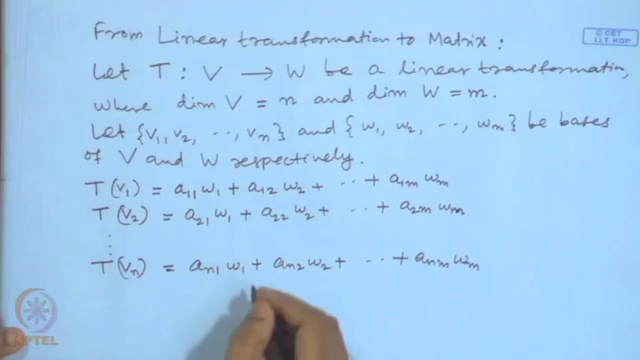 From Linear transformation to Matrix :
© CET
I.I.T. KGP
Let T : V → W be a linear transformation,
where dim V = n and dim W = m.
Let {v₁, v₂, ··, vₙ} and {w₁, w₂, ··, wₘ} be bases
of V and W respectively.
T(v₁) = a₁₁ w₁ + a₁₂ w₂ + ·· + a₁ₘ wₘ
T(v₂) = a₂₁ w₁ + a₂₂ w₂ + ·· + a₂ₘ wₘ
⋮
T(vₙ) = aₙ₁ w₁ + aₙ₂ w₂ + ·· + aₙₘ wₘ
NPTEL